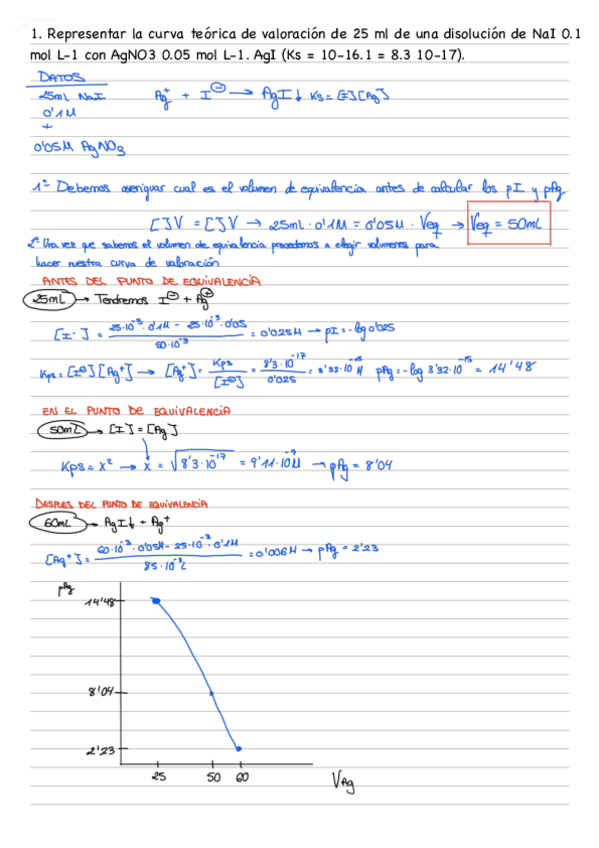 1. Representar la curva teórica de valoración de 25 ml de una disolución de NaI 0.1
mol L-1 con AgNO3 0.05 mol L-1. AgI (Ks = 10-16.1 = 8.3 10-17).
DATOS
25mL NaI
0'1M
+
0'05M AgNO₃
Ag⁺ + I⊖ → AgI↓ Ks=[I][Ag]
1º Debemos averiguar cual es el volumen de equivalencia antes de calcular los pI y pAg
[ ]V = [ ]V → 25mL · 0'1M = 0'05M · Veq → Veq = 50mL
2º Una vez que sabemos el volumen de equivalencia procedemos a elegir volumenes para
hacer nuestra curva de valoración
ANTES DEL PUNTO DE EQUIVALENCIA
25mL → Tendremos I⊖ + Ag⊕
[I⁻] = (25·10⁻³·0'1M − 25·10⁻³·0'05) / (50·10⁻³) = 0'025M → pI = -log 0'025
Kps = [I⊖][Ag⁺] → [Ag⁺] = Kps / [I⊖] = 8'3·10⁻¹⁷ / 0'025 = 3'32·10⁻¹⁵ M pAg = -log 3'32·10⁻¹⁵ = 14'48
EN EL PUNTO DE EQUIVALENCIA
50mL → [I] = [Ag]
Kps = x² → x = √8'3·10⁻¹⁷ = 9'11·10⁻⁹M → pAg = 8'04
DESPUES DEL PUNTO DE EQUIVALENCIA
60mL → AgI↓ + Ag⁺
[Ag⁺] = (60·10⁻³·0'05M − 25·10⁻³·0'1M) / (85·10⁻³L) = 0'006M → pAg = 2'23
pAg
14'48
8'04
2'23
25 50 60
VAg